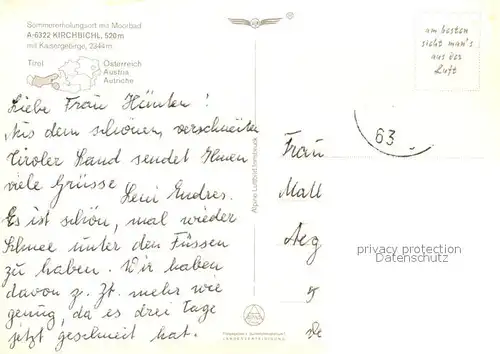 Sommererholungsort mit Moorbad
A-6322 KIRCHBICHL, 520m
mit Kaisergebirge, 2344m
Tirol
Österreich
Austria
Autriche
am besten
sieht man's
aus der
Luft
Liebe Frau Hünten!
Aus dem schönen, verschneiten
Tiroler Land sendet Ihnen
viele Grüsse
Leni Endres.
Es ist schön, mal wieder
Schnee unter den Füssen
zu haben. Wir haben
davon z. Zt. mehr wie
genug, da es drei Tage
jetzt geschneit hat.
Alpine Luftbild
63
Frau
Mall
Aeg
5
privacy protection
Datenschutz